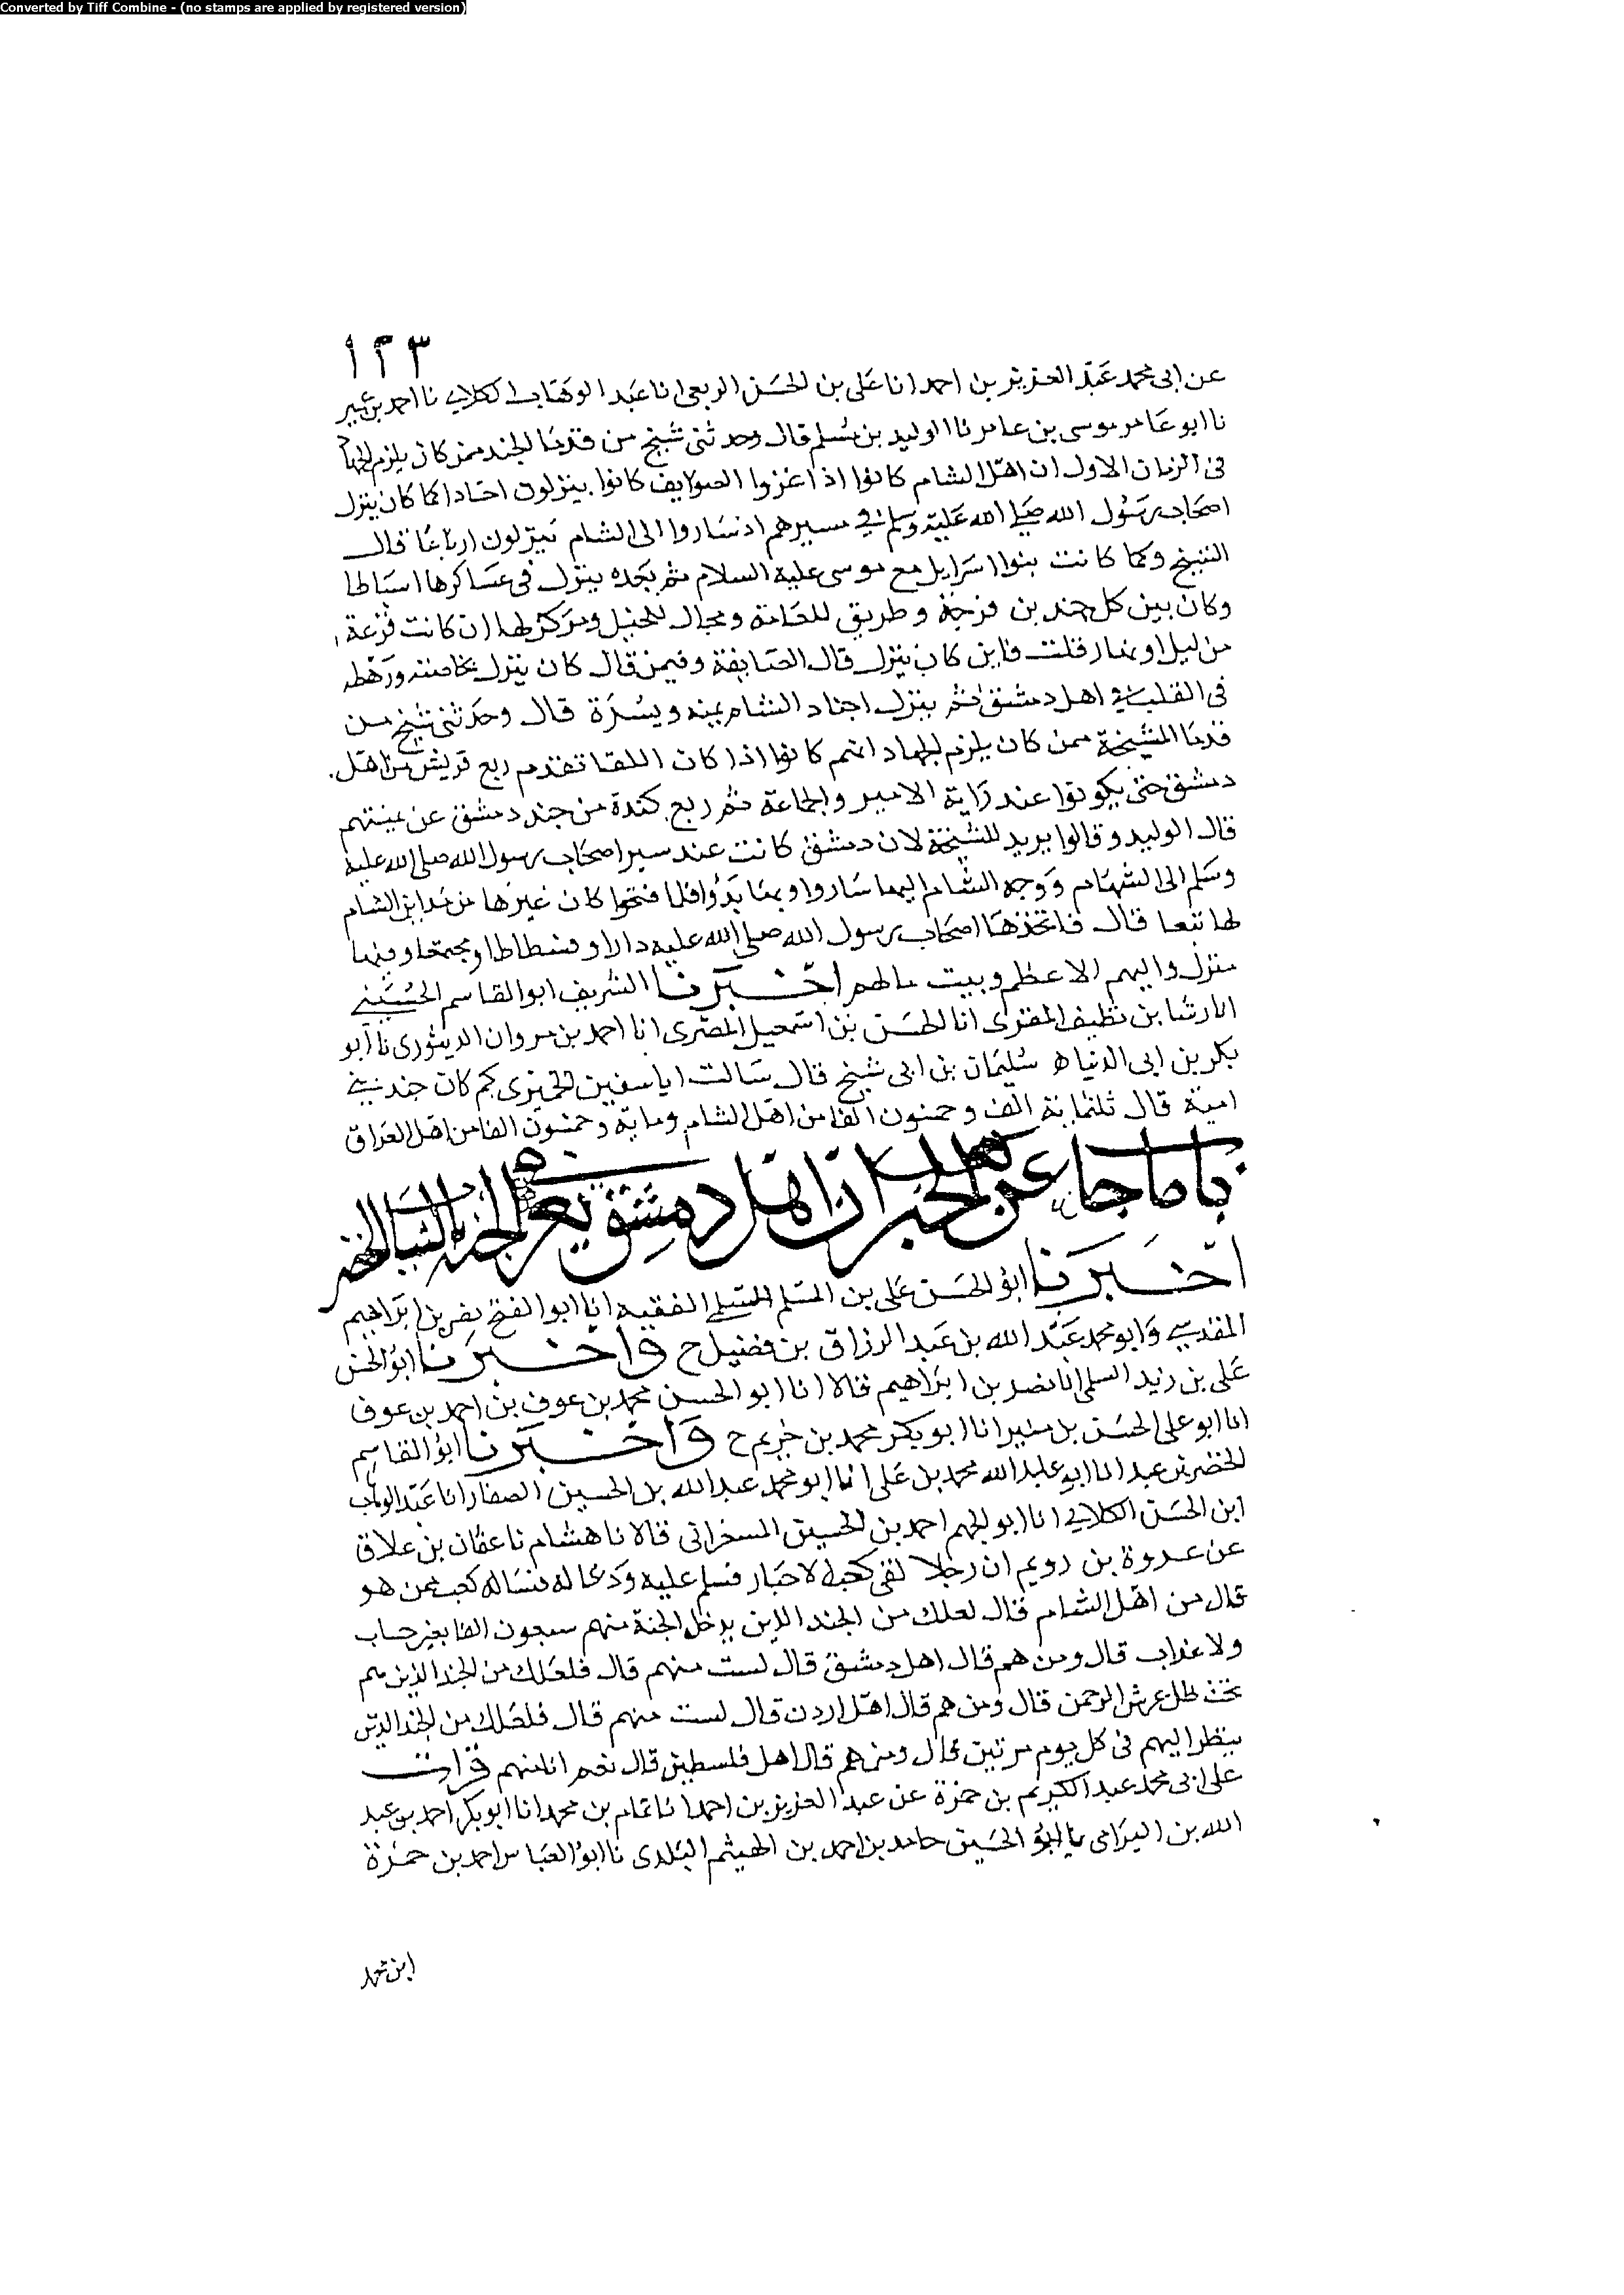 Converted by Tiff Combine - (no stamps are applied by registered version)
١٢٣
عن ابى محمد عبد العزيز بن احمد انا على بن الحسن الربعى انا عبد الوهاب الكلابى نا احمد بن عمير
نا ابو عامر موسى بن عامر نا الوليد بن مسلم قال وحدثنى شيخ من قدما الجند ممن كان يلزم الجهاد
فى الزمان الاول ان اهل الشام كانوا اذا غزوا الصوايف كانوا ينزلون اجنادا كما كان ينزل
اصحاب رسول الله صلى الله عليه وسلم فى مسيرهم اذ ساروا الى الشام ينزلون ارباعا قال
الشيخ وكما كانت بنوا اسرايل مع موسى عليه السلام ثم بعده ينزل فى عساكرها اسباطا
وكان بين كل جندين فرجة و طريق للعامة ومجال للخيل ومركز لها ان كانت فزعة
من ليل او نهار قلت فاين كان ينزل قال الصايفة وفيمن قال كان ينزل بخاصته ورهطه
فى القلب فى اهل دمشق ثم ينزل اجناد الشام يمنه ويسرة قال وحدثنى شيخ من
قدما المشيخة ممن كان يلزم الجهاد انهم كانوا اذا كان اللقا تقدم ربع قريش من اهل
دمشق حتى يكونوا عند راية الامير والجماعة ثم ربع كندة من جند دمشق عن يمنتهم
قال الوليد وقالوا يريد المشيخة لان دمشق كانت عند سير اصحاب رسول الله صلى الله عليه
وسلم الى الشام ووجه الشام اليها ساروا وبها بدؤا فلما فتحوا كان غيرها من مداين الشام
لها تبعا قال فاتخذها اصحاب رسول الله صلى الله عليه دارا وفسطاطا ومجمعا وفيها
منزل واليهم الاعظم وبيت مالهم اخبرنا الشريف ابو القاسم الحسينى
انا رشا بن نظيف المقرى انا الحسن بن اسمعيل المصرى انا احمد بن مروان الدينورى نا ابو
بكر بن ابى الدنيا نا سليمان بن ابى شيخ قال سالت ابا سفين الحميرى كم كان جند بنى
امية قال ثلثماية الف وخمسون الفا من اهل الشام وماية وخمسون الفا من اهل العراق
باب ما جا عن كعب الحبر ان اهل دمشق يعرفون فى الجنة بالثياب الخضر
اخبرنا ابو الحسن على بن المسلم السلمى الفقيه انا ابو الفتح نصر بن ابراهيم
المقدسى وابو محمد عبد الله بن عبد الرزاق بن فضيل ح واخبرنا ابو الحسن
على بن زيد السلمى انا نصر بن ابراهيم قالا انا ابو الحسن محمد بن عوف بن احمد بن عوف
انا ابو على الحسن بن منير انا ابو بكر محمد بن خريم ح واخبرنا ابو القاسم
الخضر بن عبد انا ابو عبد الله محمد بن على انا ابو محمد عبد الله بن الحسين الصفار انا عبد الوهاب
ابن الحسن الكلابى انا ابو الجهم احمد بن الحسين المشغرانى قالا نا هشام نا عثمان بن علاق
عن عروة بن رويم ان رجلا لقى كعب الاحبار فسلم عليه ودعا له فساله كعب ممن هو
قال من اهل الشام قال لعلك من الجند الذين يدخل الجنة منهم سبعون الفا بغير حساب
ولا عذاب قال ومن هم قال اهل دمشق قال لست منهم قال فلعلك من الجند الذين هم
تحت ظل عرش الرحمن قال ومن هم قال اهل اردن قال لست منهم قال فلعلك من الجند الذين
ينظر اليهم فى كل يوم مرتين قال ومن هم قال اهل فلسطين قال نعم انا منهم قرات
على ابى محمد عبد الكريم بن حمزة عن عبد العزيز بن احمد انا تمام بن محمد انا ابو بكر احمد بن عبد
الله بن البرامى نا ابو الحسين حامد بن احمد بن الهيثم البلدى نا ابو العباس احمد بن حمزة
ابن محمد